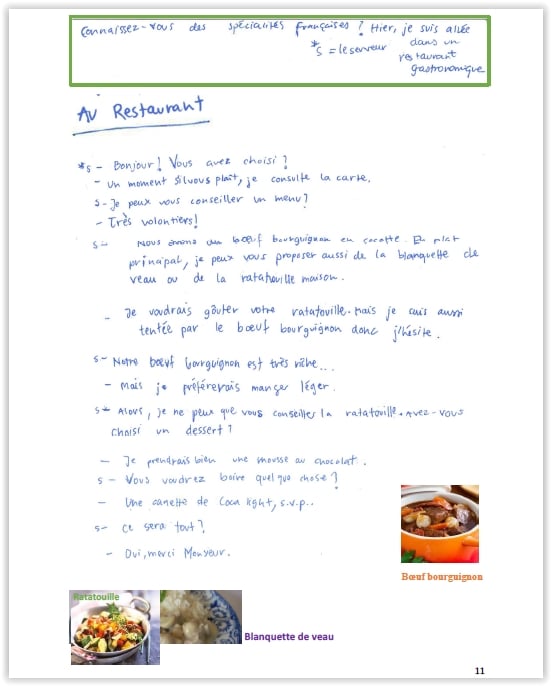 Connaissez-vous des spécialités françaises ? Hier, je suis allée
*s = le serveur
dans un
restaurant
gastronomique
AU Restaurant
*s - Bonjour! Vous avez choisi ?
- Un moment s'il vous plaît, je consulte la carte.
s - Je peux vous conseiller un menu ?
- Très volontiers!
s - Nous avons du bœuf bourguignon en cocotte. En plat
principal, je peux vous proposer aussi de la blanquette de
veau ou de la ratatouille maison.
- Je voudrais goûter votre ratatouille. Mais je suis aussi
tentée par le bœuf bourguignon donc j'hésite.
s - Notre bœuf bourguignon est très riche...
- Mais je préférerais manger léger.
s - Alors, je ne peux que vous conseiller la ratatouille. Avez-vous
choisi un dessert ?
- Je prendrais bien une mousse au chocolat.
s - Vous voudrez boire quelque chose ?
- Une canette de Coca light, s.v.p..
s - Ce sera tout ?
- Oui, merci Monsieur.
Bœuf bourguignon
Ratatouille
Blanquette de veau
11